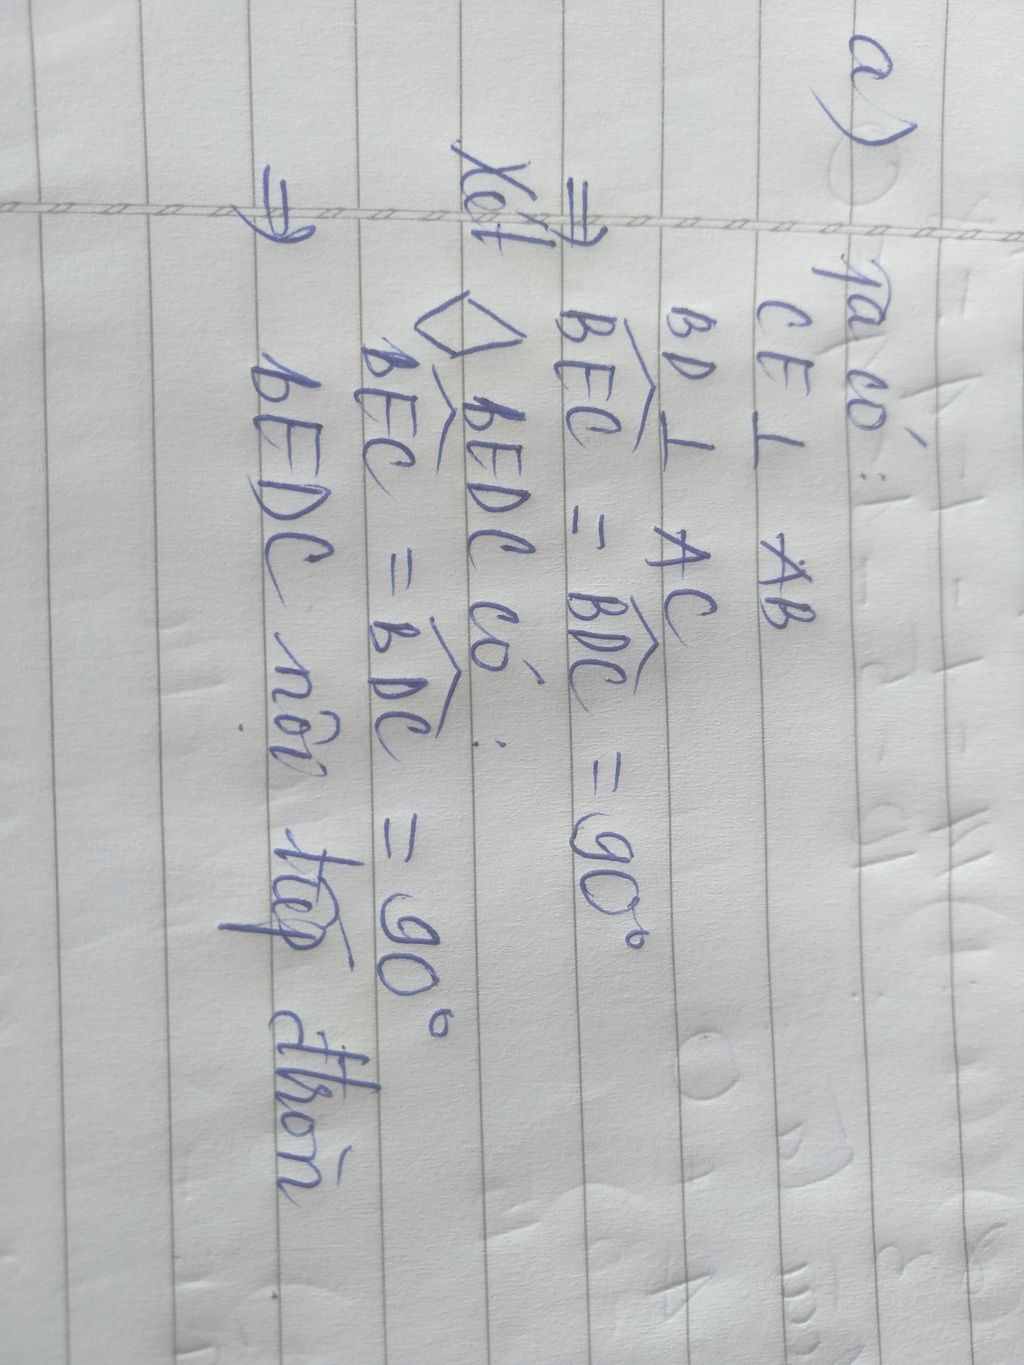 a) Ta có:
CE ⊥ AB
BD ⊥ AC
⇒ BEC = BDC = 90°
Xét ◇ BEDC có:
BEC = BDC = 90°
⇒ BEDC nội tiếp đtròn